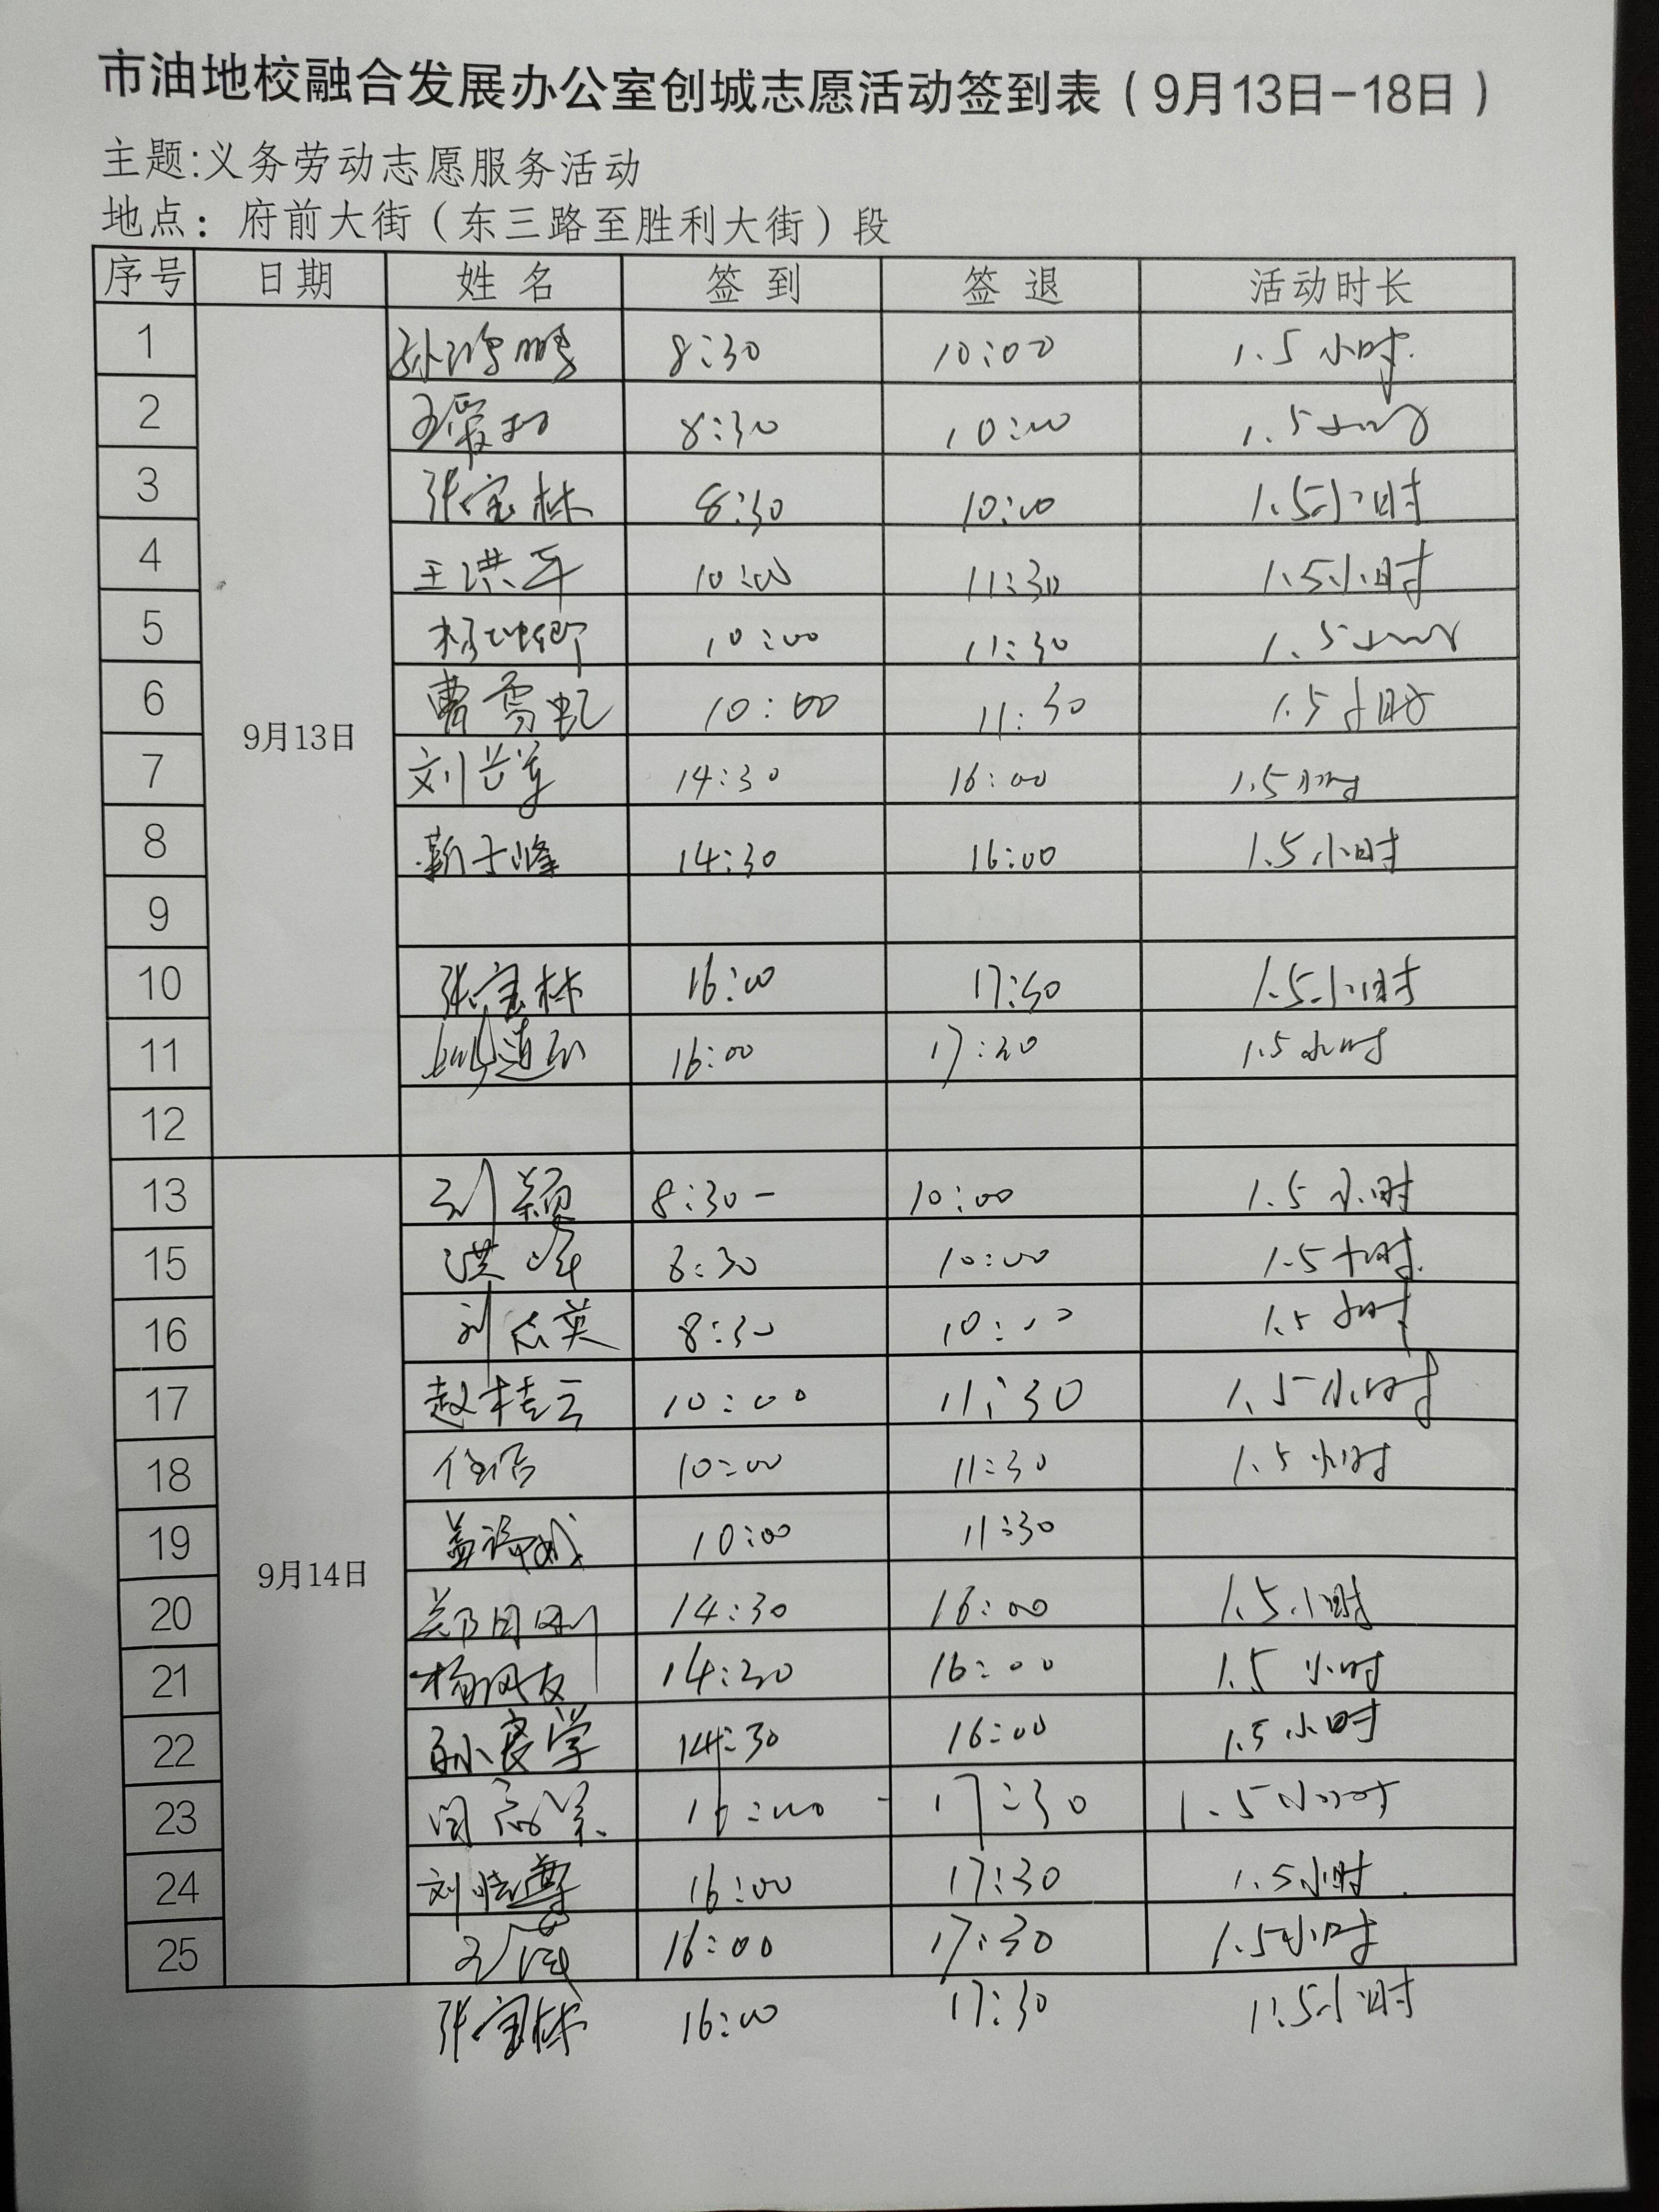 市油地校融合发展办公室创城志愿活动签到表（9月13日-18日）
主题:义务劳动志愿服务活动
地点：府前大街（东三路至胜利大街）段
序号 日期 姓名 签到 签退 活动时长
1 孙鸿鹏 8:30 10:00 1.5小时.
2 8:30 10:00 1.5小时
3 张宝林 8:30 10:00 1.5小时
4 王洪军 10:00 11:30 1.5小时
5 10:00 11:30 1.5小时
6 曹雪虹 10:00 11:30 1.5小时
9月13日
7 14:30 16:00 1.5小时
8 靳子峰 14:30 16:00 1.5小时
9
10 张宝林 16:00 17:30 1.5小时
11 16:00 17:30 1.5小时
12
13 刘颖 8:30- 10:00 1.5小时
15 洪峰 8:30 10:00 1.5小时.
16 刘志英 8:30 10:00 1.5小时
17 赵桂云 10:00 11:30 1.5小时
18 10:00 11:30 1.5小时
19 10:00 11:30
9月14日
20 14:30 16:00 1.5小时
21 14:30 16:00 1.5小时
22 孙良学 14:30 16:00 1.5小时
23 16:00 - 17:30 1.5小时
24 刘晓尊 16:00 17:30 1.5小时.
25 16:00 17:30 1.5小时
张宝林 16:00 17:30 1.5小时